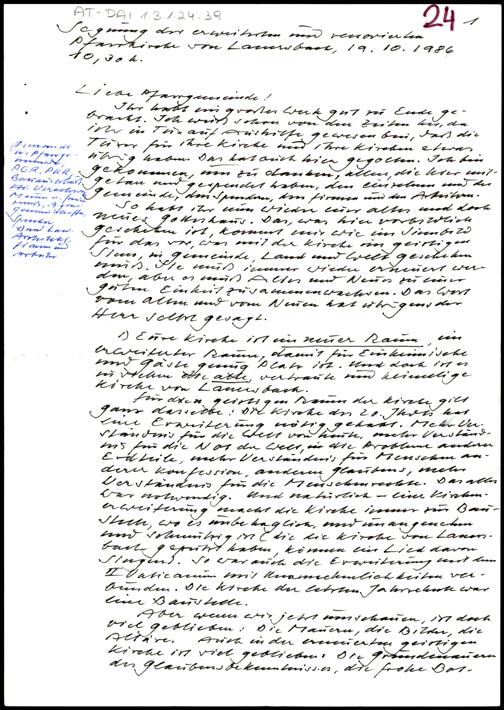 AT-DAI 13.1.24.39
24 1
Segnung der erweiterten und renovierten
Pfarrkirche von Lanersbach, 19.10.1986
10,30 h.
Liebe Pfarrgemeinde!
Ihr habt ein großes Werk gut zu Ende ge-
bracht. Ich weiß schon von den Zeiten her, da
ich in Tux auf Aushilfe gewesen bin, daß die
Tuxer für ihre Kirche und ihre Kirchen etwas
übrig haben. Das hat auch hier gegolten. Ich bin
gekommen, um zu danken, allen, die hier mit-
getan und gespendet haben, den einzelnen und der
Gemeinde, den Spendern, den Firmen und den Arbeitern.
So habt ihr nun wieder euer altes und doch
neues Gotteshaus. Das, was hier vorbildlich
geschehen ist, kommt mir wie ein Sinnbild
für das vor, was mit der Kirche im geistigen
Sinn, in Gemeinde, Land und Welt geschehen
muß. Sie muß immer wieder erneuert wer-
den, aber es muß Altes und Neues zu einer
guten Einheit zusammenwachsen. Das Wort
vom Alten und vom Neuen hat übrigens der
Herr selbst gesagt.
Gemeinde
u. Pfarrge-
meinde
PGR, PKR,
Spender
Architekt,
Firmen und
Arbeiter
1) Eure Kirche ist ein neuer Raum, ein
erweiterter Raum, damit für Einheimische
und Gäste genug Platz ist. Und doch ist es
die alte, vertraute und heimelige
Kirche von Lanersbach.
Für den geistigen Raum der Kirche gilt
ganz dasselbe: Die Kirche des 20. Jhdts hat
eine Erweiterung nötig gehabt. Mehr Ver-
ständnis für die Welt von heute, mehr Verständ-
nis für die Not der Welt, in die Probleme anderer
Erdteile, mehr Verständnis für Menschen an-
derer Konfession, anderen Glaubens, mehr
Verständnis für die Menschenrechte. Das alles
war notwendig. Und natürlich – eine Kirchen-
erweiterung macht die Kirche immer zur Bau-
stelle, wo es unbehaglich, und unangenehm
und schmutzig ist (die die Kirche von Laners-
bach geputzt haben, können ein Lied davon
singen). So war auch die Erweiterung mit dem
II Vaticanum mit Unannehmlichkeiten ver-
bunden. Die Kirche der letzten Jahrzehnte war
eine Baustelle.
Aber wenn wir jetzt umschauen, ist doch
viel geblieben: Die Mauern, die Bilder, die
Altäre. Auch in der erneuerten geistigen
Kirche ist viel geblieben: Die Grundmauern
des Glaubensbekenntnisses, die frohe Bot-